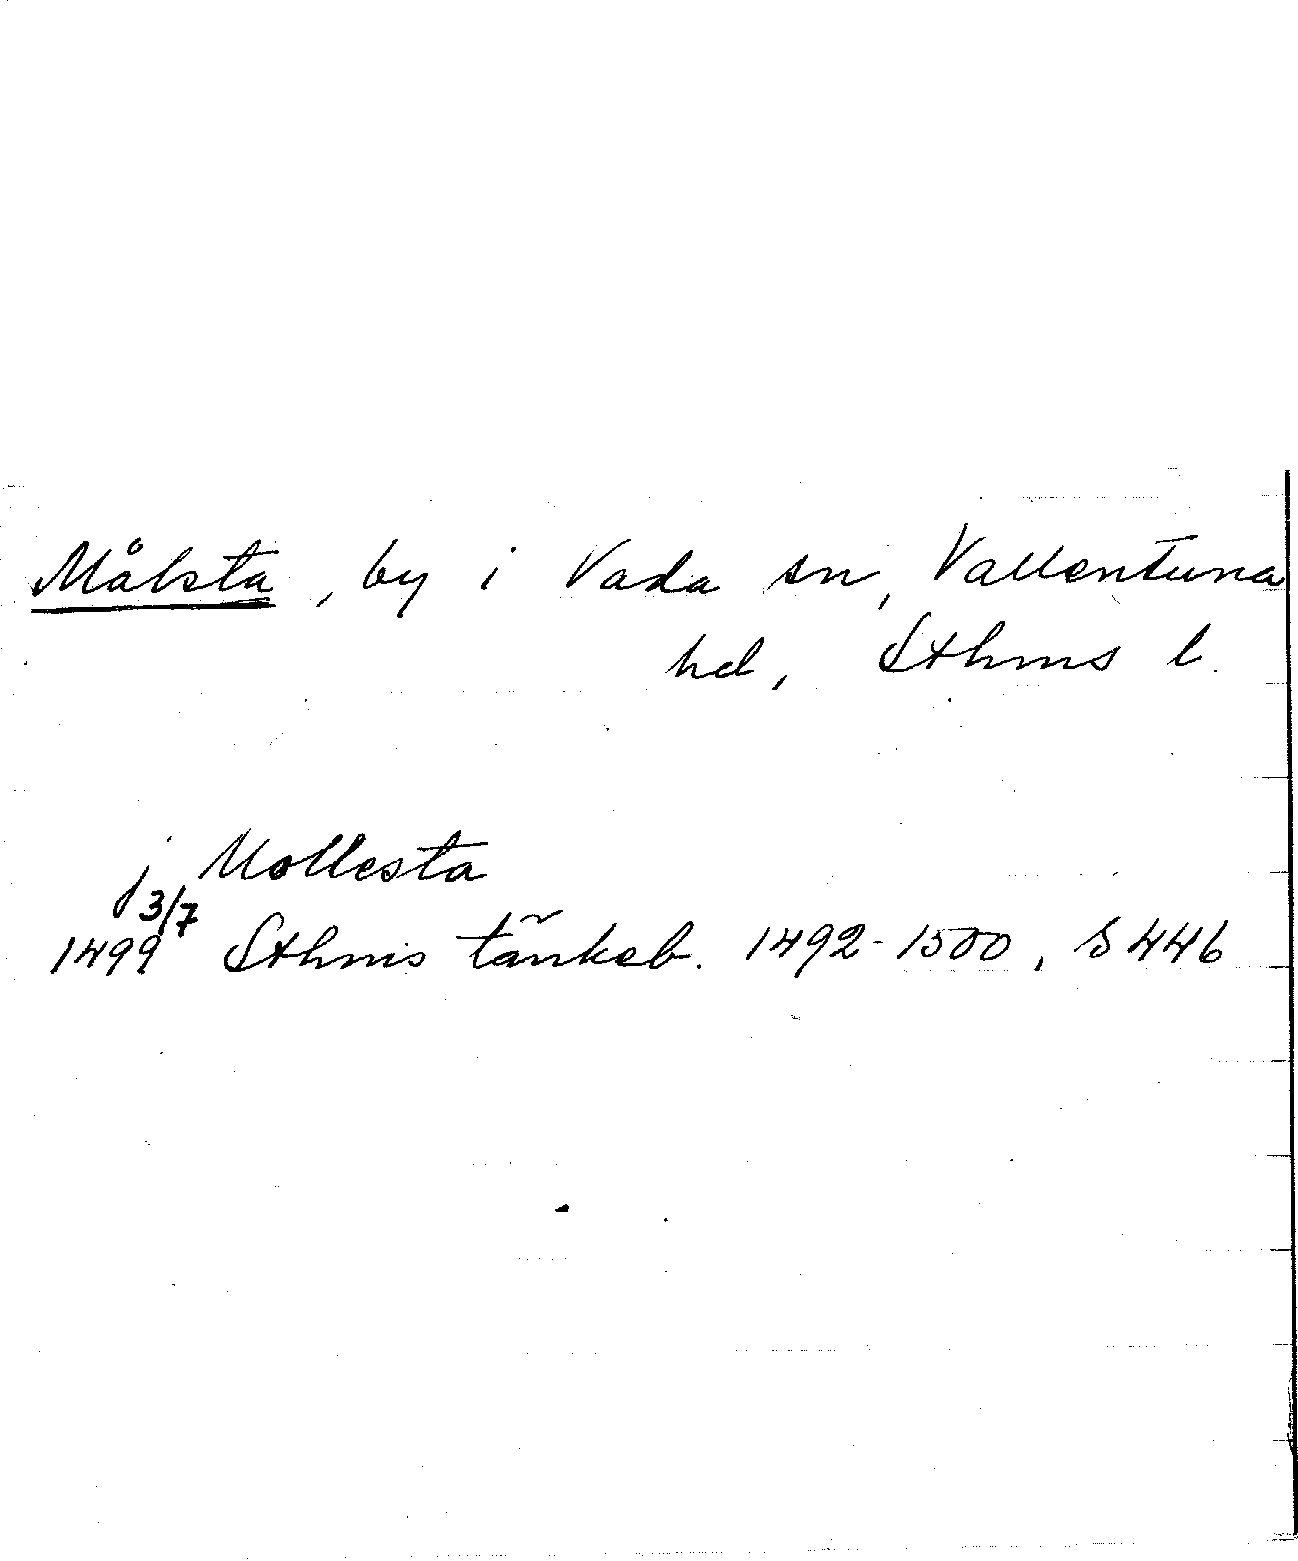 Målsta, by i Vada sn, Vallentuna
hd, Sthms l.
j Mollesta
3/7
1499 Sthms tänkeb. 1492-1500, s 446